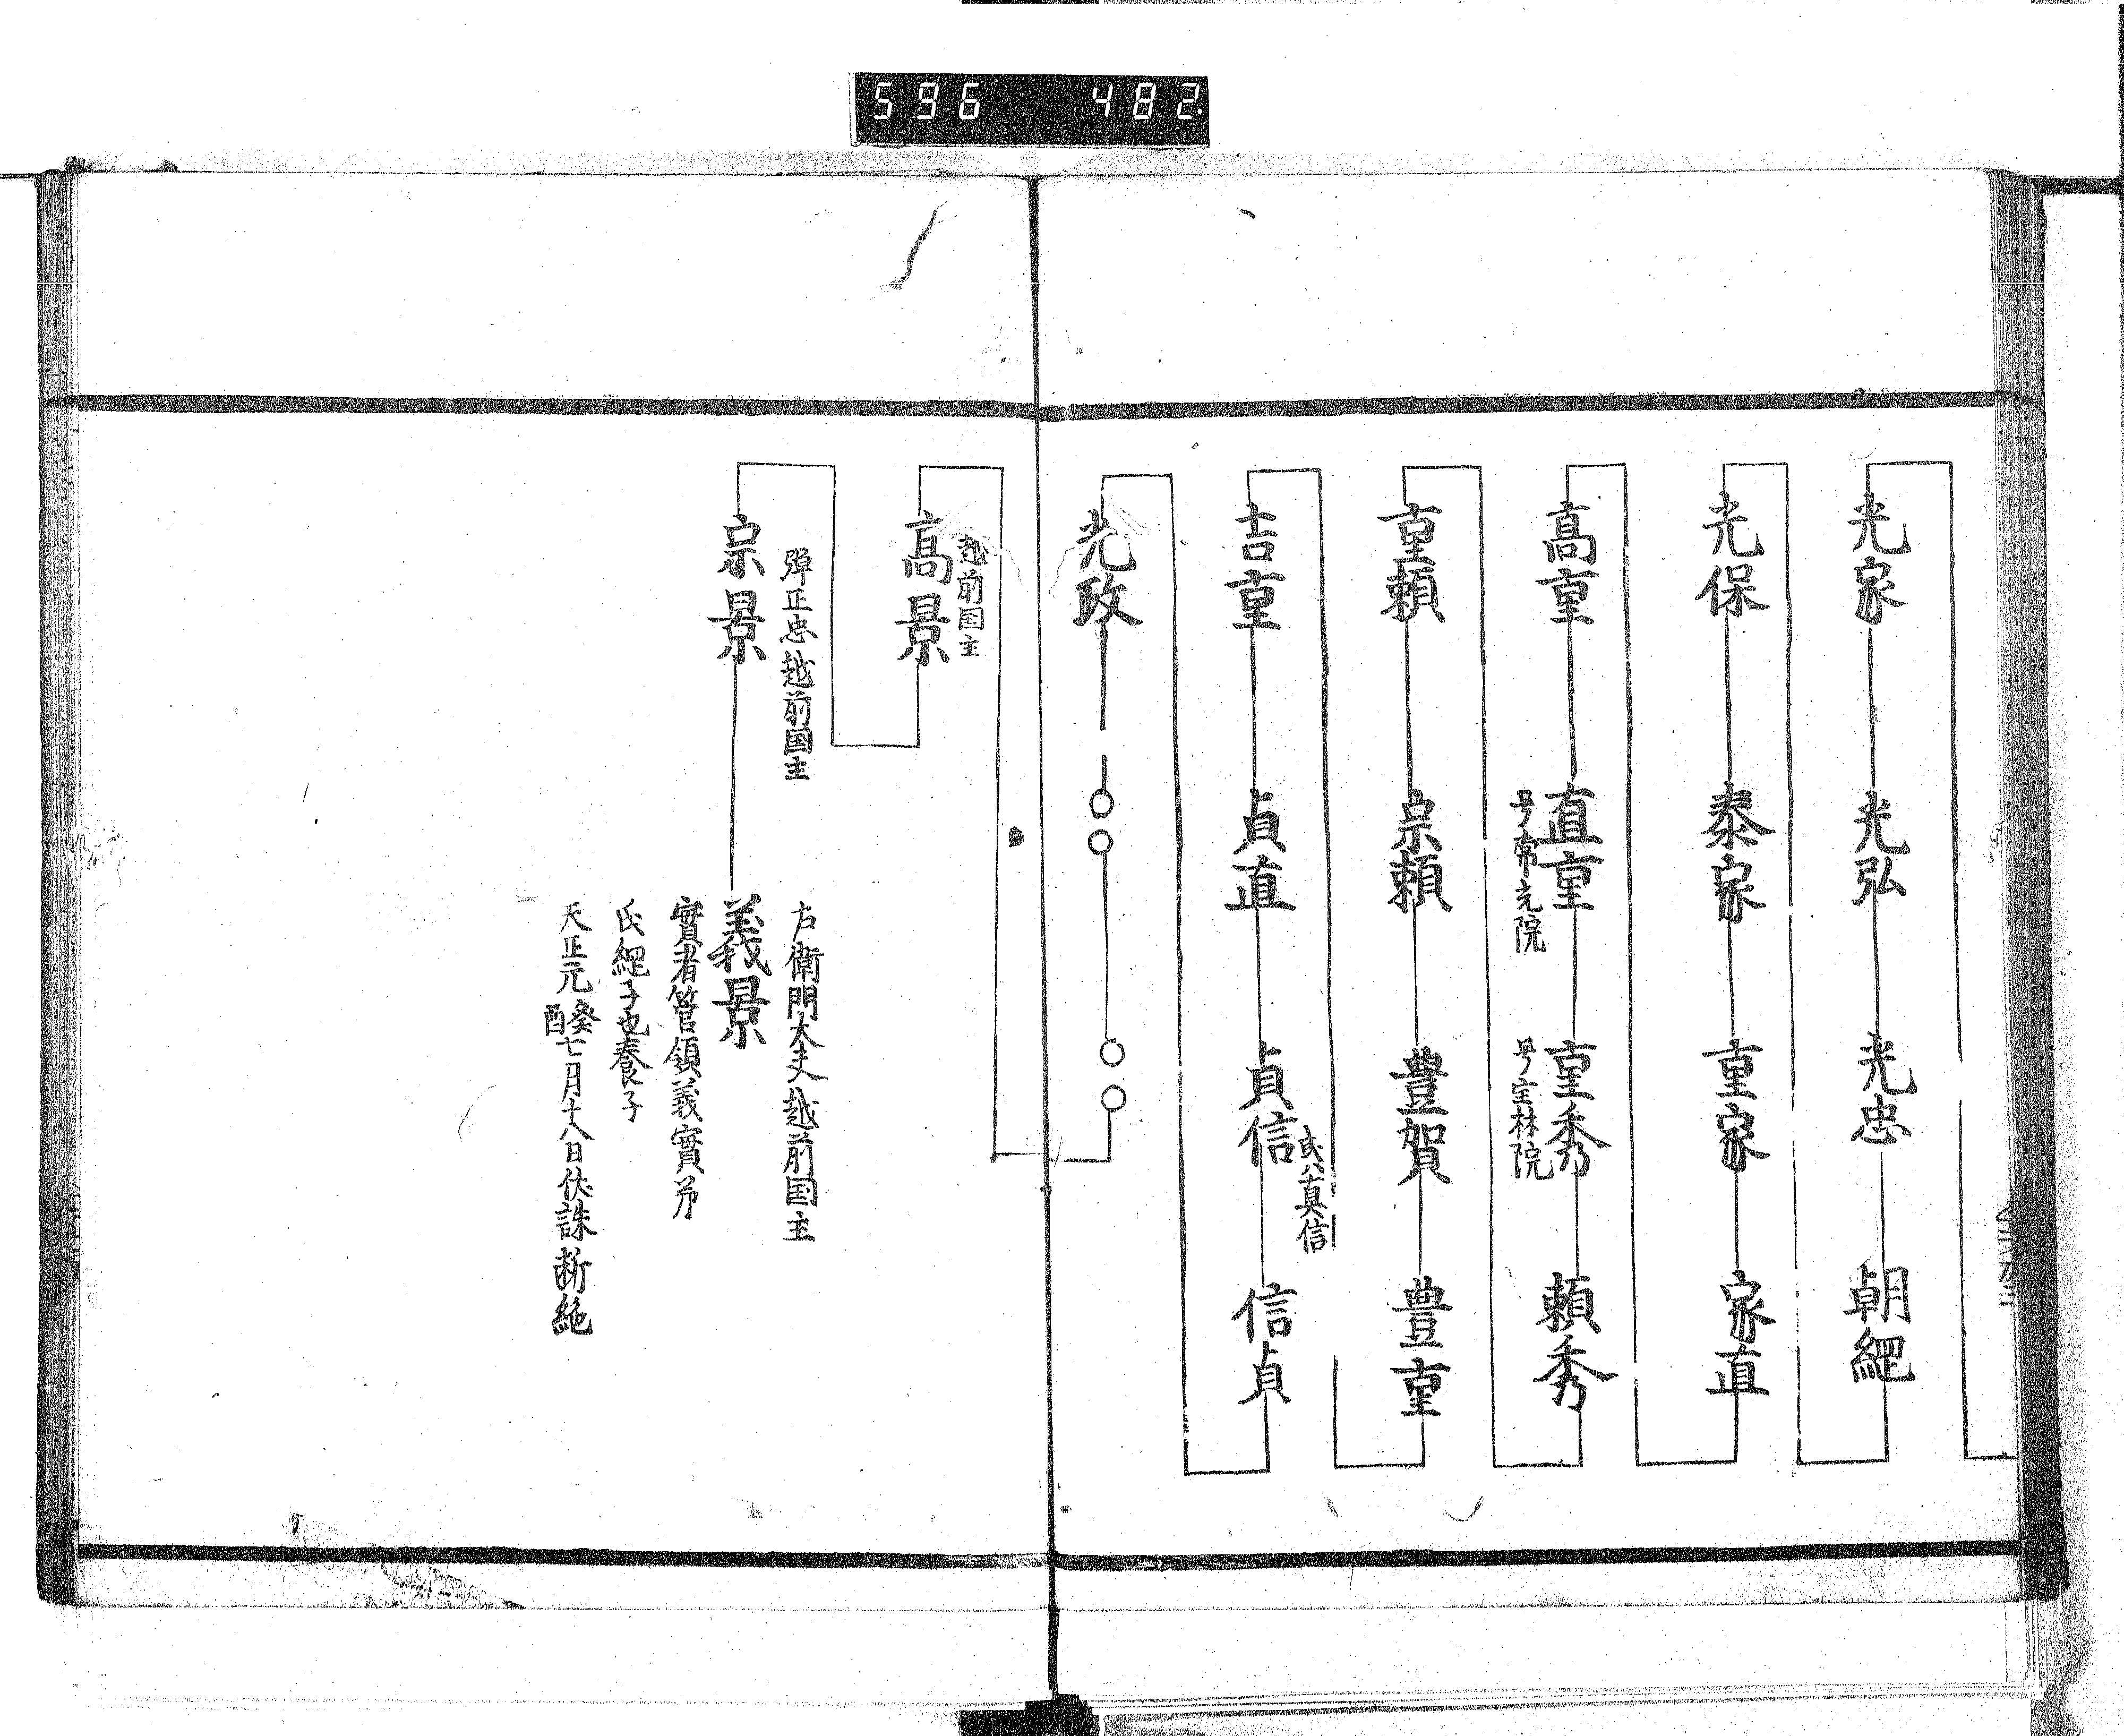 596 482
光家 光弘 光忠 朝綱
光保 泰家 重家 家直
高重 直重 重秀 頼秀
号常光院
号宝林院
重頼 宗頼 豊賀 豊重
吉重 貞直 貞信 信貞
氏公真信
光政 ○○ ○○
越前国主
高景
弾正忠越前国主
宗景
左衛門大夫越前国主
義景
實者管領義實弟
氏綱子也養子
天正元癸酉七月十八日伏誅断絶